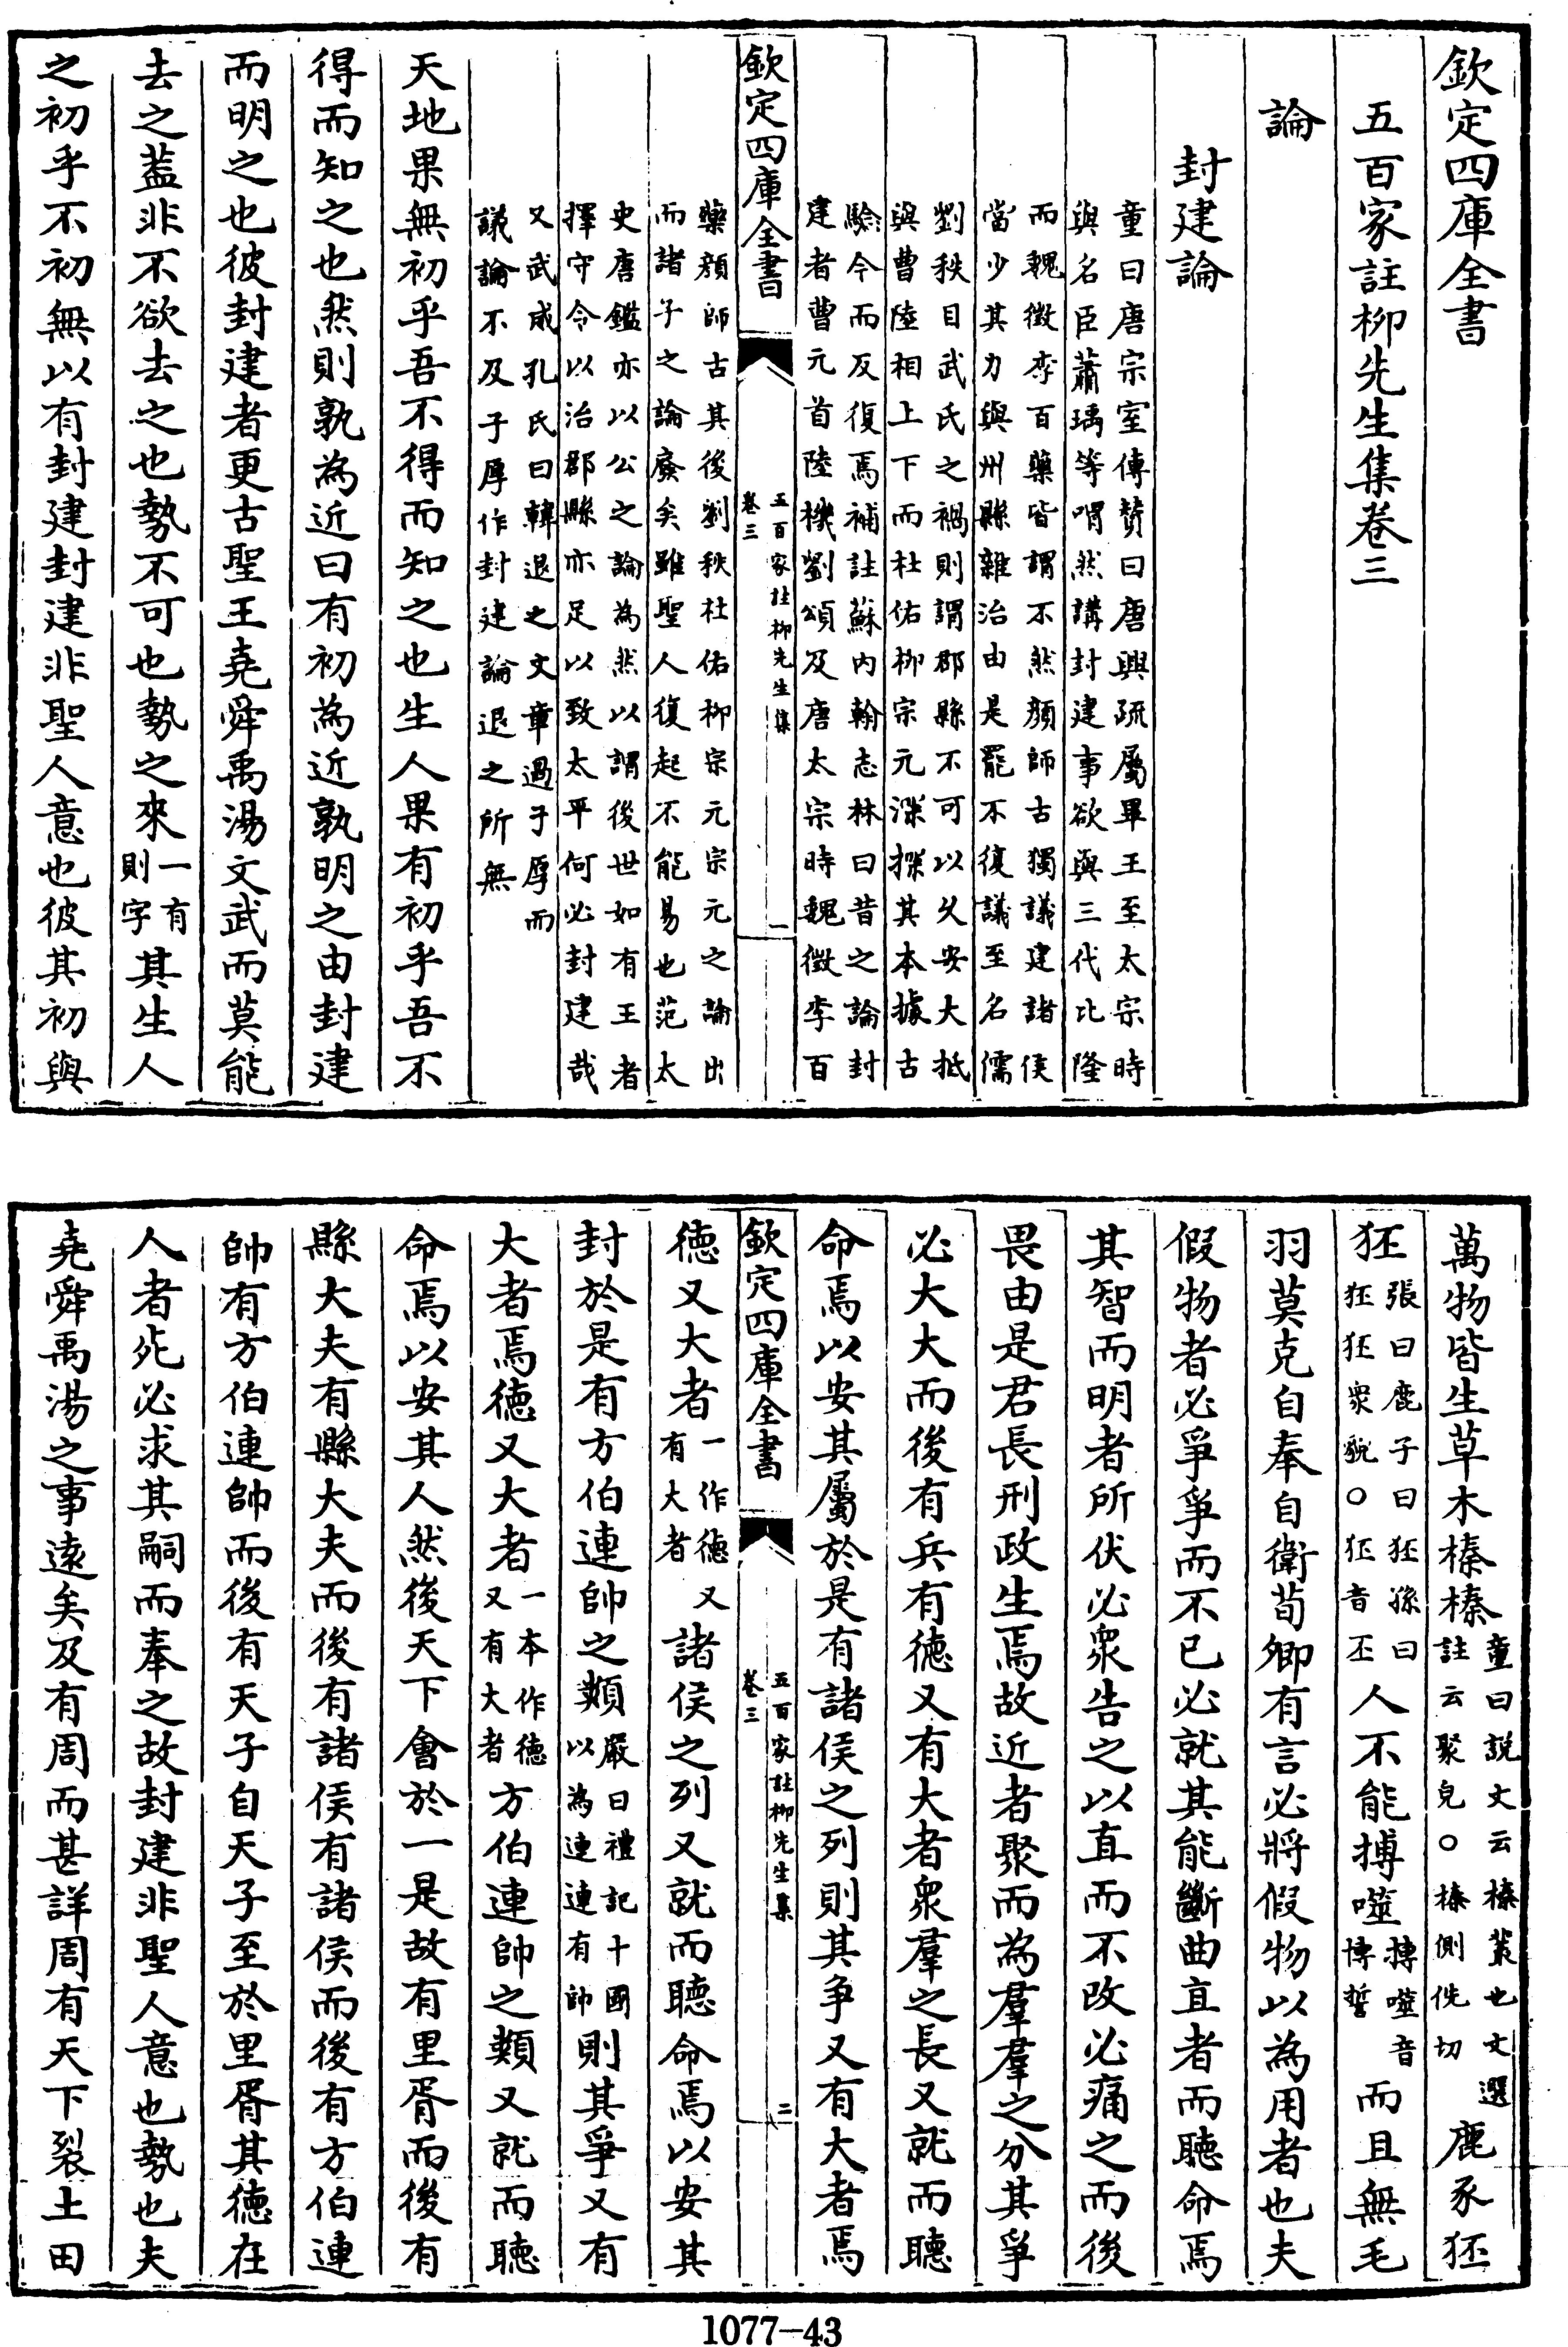 欽定四庫全書
五百家註柳先生集卷三
論
封建論
童曰唐宗室傳贊曰唐興疏屬畢王至太宗時
與名臣蕭瑀等喟然講封建事欲與三代比隆
而魏徵李百藥皆謂不然顔師古獨議建諸侯
當少其力與州縣雜治由是罷不復議至名儒
劉秩目武氏之禍則謂郡縣不可以久安大抵
與曹陸相上下而杜佑柳宗元深探其本據古
驗今而反復焉補註蘇内翰志林曰昔之論封
建者曹元首陸機劉頌及唐太宗時魏徵李百
欽定四庫全書
五百家註柳先生集
卷三
一
藥顔師古其後劉秩杜佑柳宗元宗元之論出
而諸子之論廢矣雖聖人復起不能易也范太
史唐鑑亦以公之論為然以謂後世如有王者
擇守令以治郡縣亦足以致太平何必封建哉
又武成孔氏曰韓退之文章過子厚而
議論不及子厚作封建論退之所無
天地果無初乎吾不得而知之也生人果有初乎吾不
得而知之也然則孰為近曰有初為近孰明之由封建
而明之也彼封建者更古聖王堯舜禹湯文武而莫能
去之蓋非不欲去之也勢不可也勢之來一有則字其生人
之初乎不初無以有封建封建非聖人意也彼其初與
萬物皆生草木榛榛童曰説文云榛叢也文選註云聚皃○榛側侁切鹿豕狉
狉張曰鹿子曰狉孫曰狉狉衆貌○狉音丕人不能搏噬搏噬音博誓而且無毛
羽莫克自奉自衛荀卿有言必將假物以為用者也夫
假物者必爭爭而不已必就其能斷曲直者而聽命焉
其智而明者所伏必衆告之以直而不改必痛之而後
畏由是君長刑政生焉故近者聚而為羣羣之分其爭
必大大而後有兵有德又有大者衆羣之長又就而聽
命焉以安其屬於是有諸侯之列則其争又有大者焉
欽定四庫全書
五百家註柳先生集
卷三
二
德又大者一作德又有大者諸侯之列又就而聽命焉以安其
封於是有方伯連帥之類嚴曰禮記十國以為連連有帥則其爭又有
大者焉德又大者一本作德又有大者方伯連帥之類又就而聽
命焉以安其人然後天下會於一是故有里胥而後有
縣大夫有縣大夫而後有諸侯有諸侯而後有方伯連
帥有方伯連帥而後有天子自天子至於里胥其德在
人者死必求其嗣而奉之故封建非聖人意也勢也夫
堯舜禹湯之事遠矣及有周而甚詳周有天下裂土田
1077-43